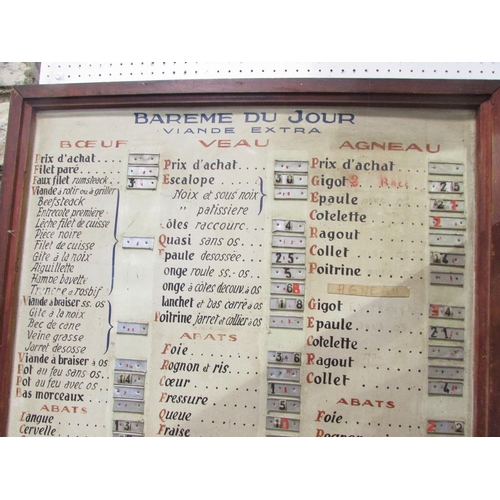 BAREME DU JOUR
VIANDE EXTRA
BŒUF
Prix d'achat
Filet paré
Faux filet rumsteack
3
Viande à rotir ou à griller
Beefsteack
Entrecote première
Lèche filet de cuisse
Pièce noire
Filet de cuisse
Gite à la noix
Aiguillette
Hampe bavette
Tranche et rosbif
Viande à braiser ss. os
Gite à la noix
Bec de cane
Veine grasse
Jarret desosse
Viande à braiser à os
Pot au feu sans os
14
Pot au feu avec os
Bas morceaux
ABATS
Langue
Cervelle
VEAU
Prix d'achat
Escalope
30
Noix et sous noix
" patissiere
Côles raccourc
4
Quasi sans os
Epaule desossée
25
onge roule ss. os
5
onge à côles décou à os
68
lanchet et bas carré à os
8
Poitrine jarret et collier à os
ABATS
Foie
36
Rognon et ris
Cœur
1
Fressure
5
Queue
Fraise
AGNEAU
Prix d'achat
Gigot
25
Epaule
Cotelette
2
Ragout
Collet
Poitrine
AGNEAU
Gigot
Epaule
Cotelette
Ragout
Collet
ABATS
Foie
2 2
Rognon